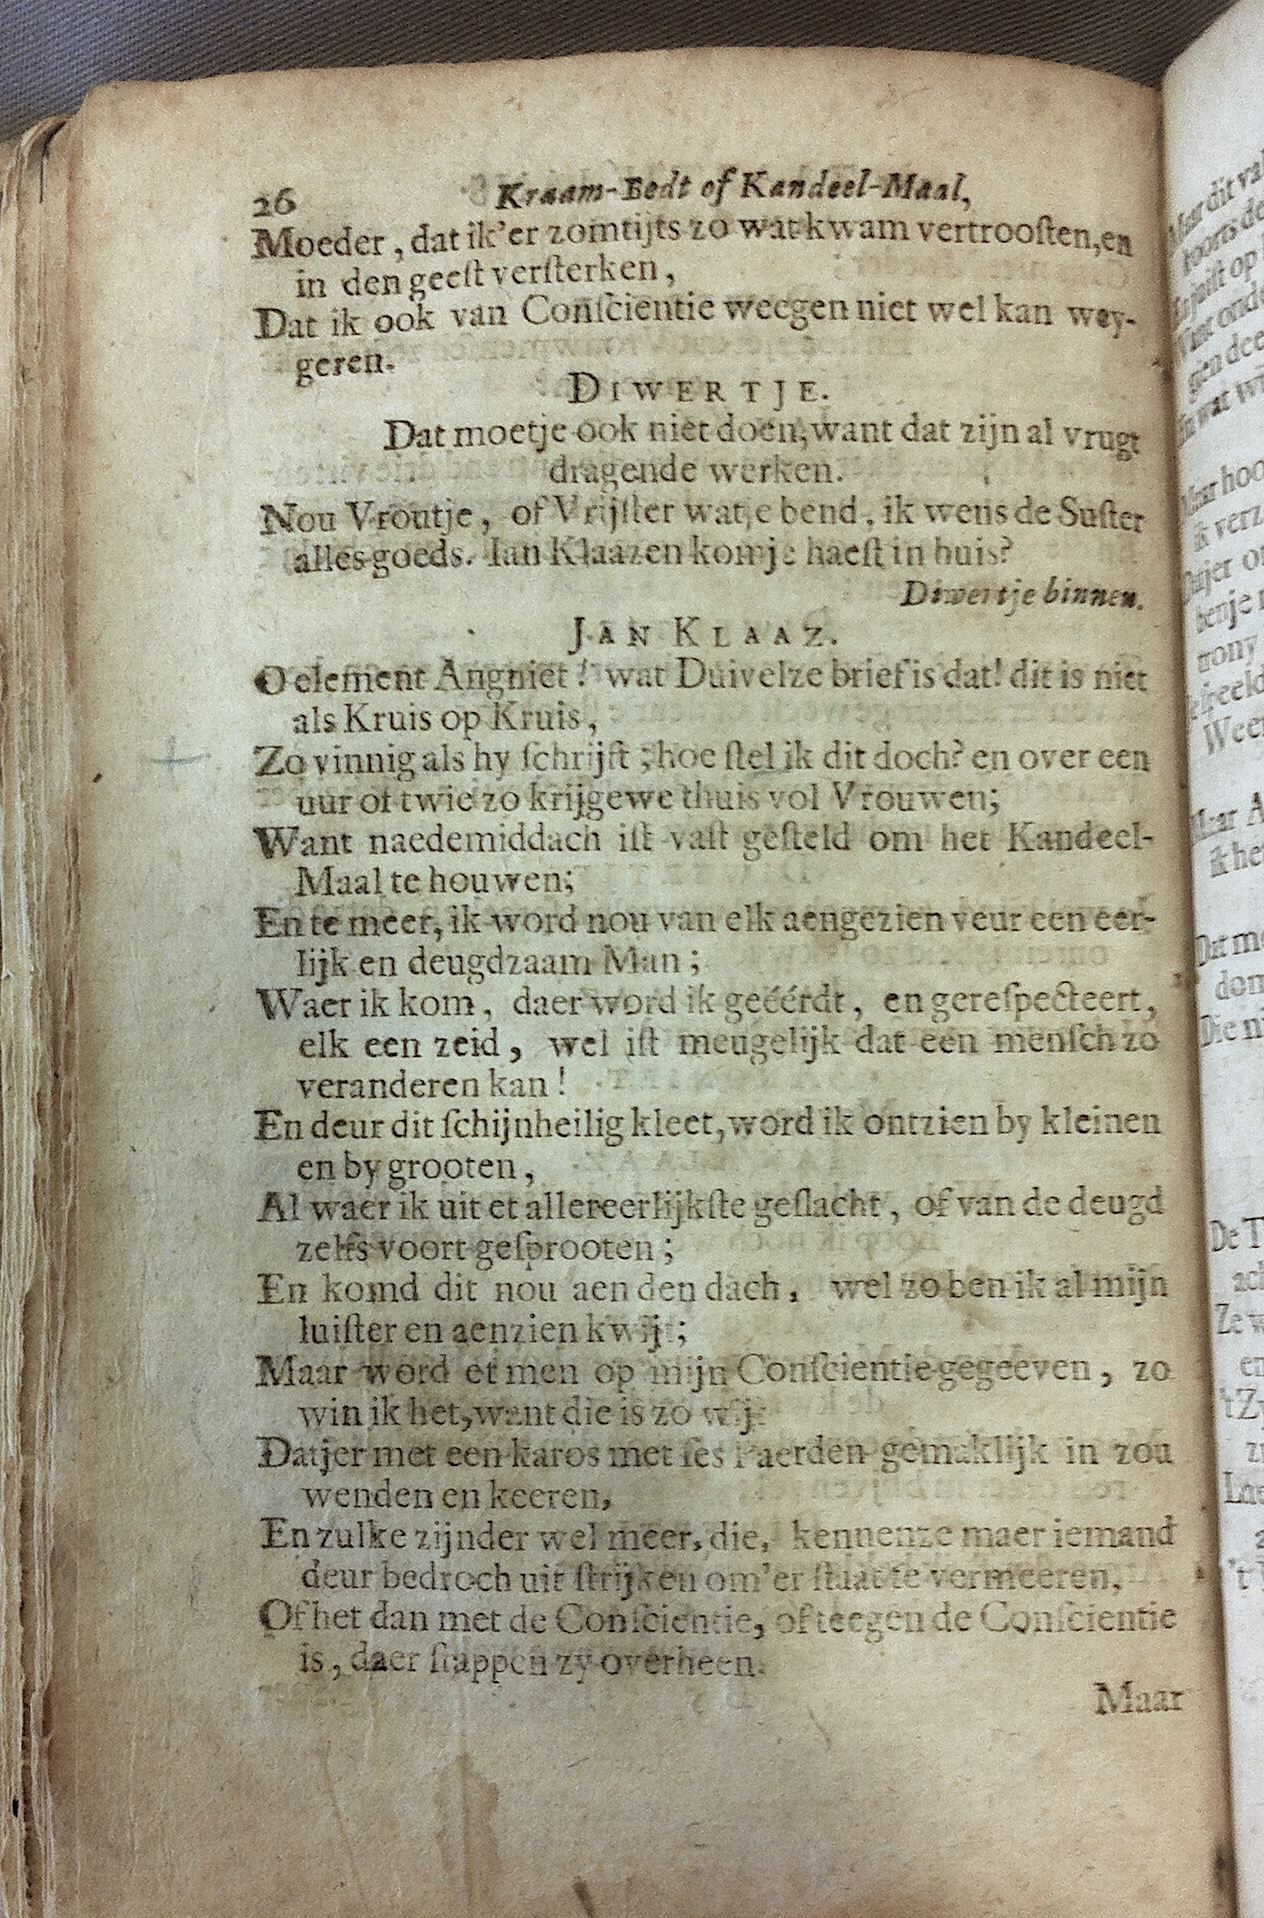 26 Kraam-Bedt of Kandeel-Maal,
Moeder, dat ik'er zomtijts zo wat kwam vertrooſten, en
in den geeſt verſterken,
Dat ik ook van Conſcientie weegen niet wel kan wey-
geren.
DIWERTJE.
Dat moetje ook niet doen, want dat zijn al vrugt
dragende werken.
Nou Vroutje, of Vrijſter watje bend, ik wens de Suſter
alles goeds. Ian Klaazen komje haeſt in huis?
Diwertje binnen.
JAN KLAAZ.
O element Angniet! wat Duivelze brief is dat! dit is niet
als Kruis op Kruis,
Zo vinnig als hy ſchrijft; hoe ſtel ik dit doch? en over een
uur of twie zo krijgewe thuis vol Vrouwen;
Want naedemiddach iſt vaſt geſteld om het Kandeel-
Maal te houwen;
En te meer, ik word nou van elk aengezien veur een eer-
lijk en deugdzaam Man;
Waer ik kom, daer word ik geéérdt, en gereſpecteert,
elk een zeid, wel iſt meugelijk dat een menſch zo
veranderen kan!
En deur dit ſchijnheilig kleet, word ik ontzien by kleinen
en by grooten,
Al waer ik uit et allereerlijkſte geſlacht, of van de deugd
zelfs voort geſprooten;
En komd dit nou aen den dach, wel zo ben ik al mijn
luiſter en aenzien kwijt;
Maar word et men op mijn Conſcientie gegeeven, zo
win ik het, want die is zo wijt
Datjer met een karos met ſes Paerden gemaklijk in zou
wenden en keeren,
En zulke zijnder wel meer, die, kennenze maer iemand
deur bedroch uit ſtrijken om'er ſtaat te vermeeren,
Of het dan met de Conſcientie, of teegen de Conſcientie
is, daer ſtappen zy overheen.
Maar